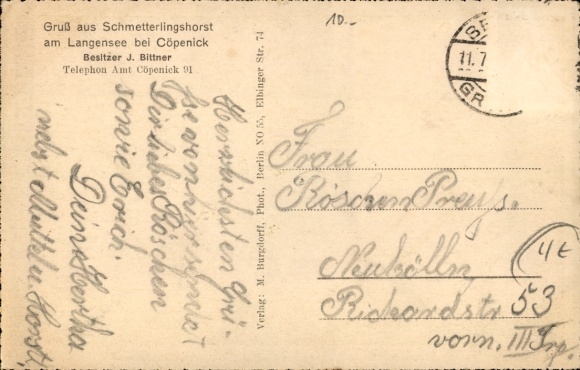 Gruß aus Schmetterlingshorst
am Langensee bei Cöpenick
Besitzer J. Bittner
Telephon Amt Cöpenick 91
10.-
11.7
GR
Verlag: M. Burgdorff, Phot., Berlin NO 55, Elbinger Str. 74
Herzlichsten Grü-
sse von hier sendet
Dir liebes Röschen
sowie Erich.
Deine Hertha
nebst Mutti u. Horst.
Frau
Röschen Preyß.
Neukölln
Richardstr 53
vorn. III Trp.
4t